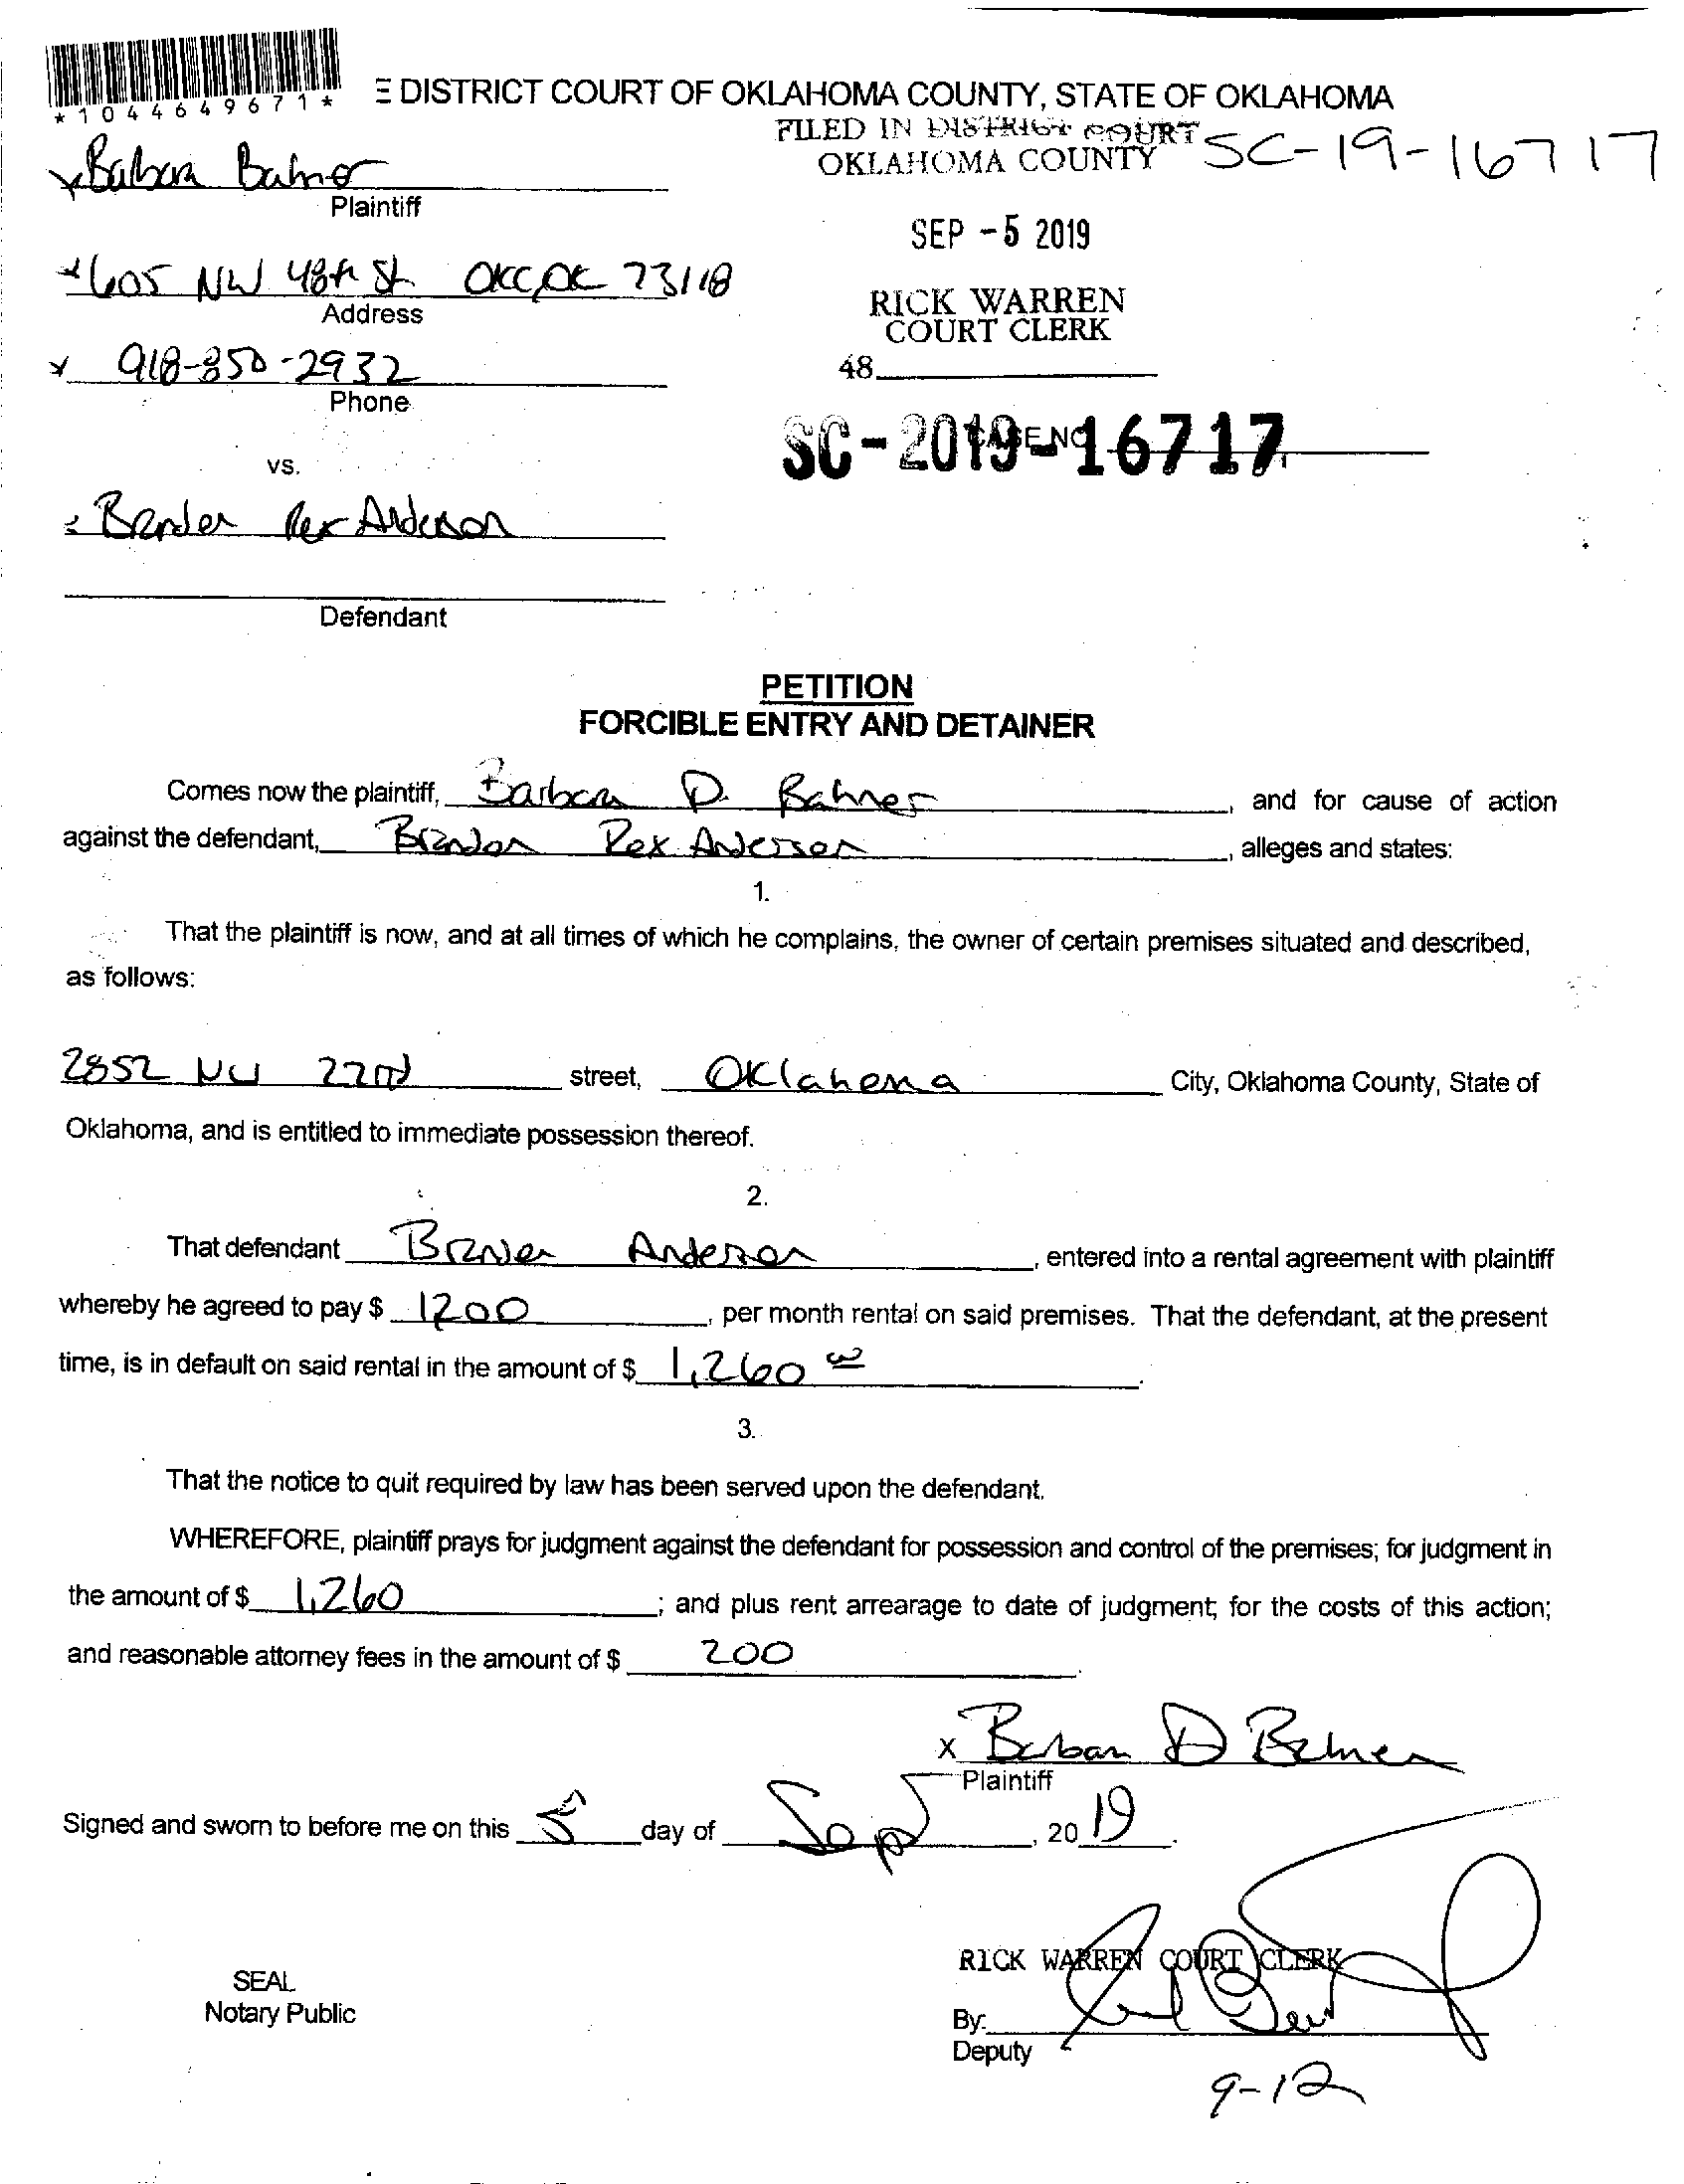 *1044649671*
E DISTRICT COURT OF OKLAHOMA COUNTY, STATE OF OKLAHOMA
FILED IN DISTRICT COURT
OKLAHOMA COUNTY
SC-19-16717
x Barbara Bahner
Plaintiff
SEP -5 2019
x 605 NW 48th St OKC, OK 73118
Address
RICK WARREN
COURT CLERK
x 918-850-2932
Phone
48
SC-2019-16717
CASE NO.
vs.
Branden Rex Anderson
Defendant
PETITION
FORCIBLE ENTRY AND DETAINER
Comes now the plaintiff, Barbara D. Bahner, and for cause of action
against the defendant, Brandon Rex Anderson, alleges and states:
1.
That the plaintiff is now, and at all times of which he complains, the owner of certain premises situated and described,
as follows:
2852 NW 22nd street, Oklahoma City, Oklahoma County, State of
Oklahoma, and is entitled to immediate possession thereof.
2.
That defendant Branden Anderson, entered into a rental agreement with plaintiff
whereby he agreed to pay $ 1200, per month rental on said premises. That the defendant, at the present
time, is in default on said rental in the amount of $ 1,260 00.
3.
That the notice to quit required by law has been served upon the defendant.
WHEREFORE, plaintiff prays for judgment against the defendant for possession and control of the premises; for judgment in
the amount of $ 1,260; and plus rent arrearage to date of judgment; for the costs of this action;
and reasonable attorney fees in the amount of $ 200.
x Barbara D Bahner
Plaintiff
Signed and sworn to before me on this 5 day of Sept, 2019.
RICK WARREN COURT CLERK
SEAL
Notary Public
By:
Deputy
9-12